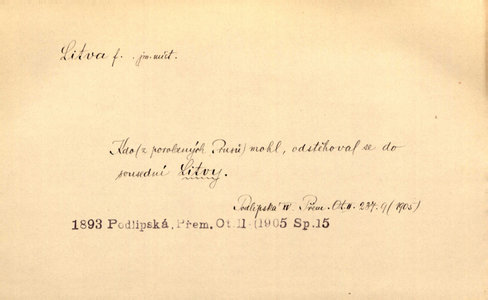 Litva f. jm. míst.
Kdo (z porobených Prusů) mohl, odstěhoval se do
sousední Litvy.
Podlipská IV Přem. Ot. II. 237.9 (1905)
1893 Podlipská, Přem. Ot. II (1905 Sp.15